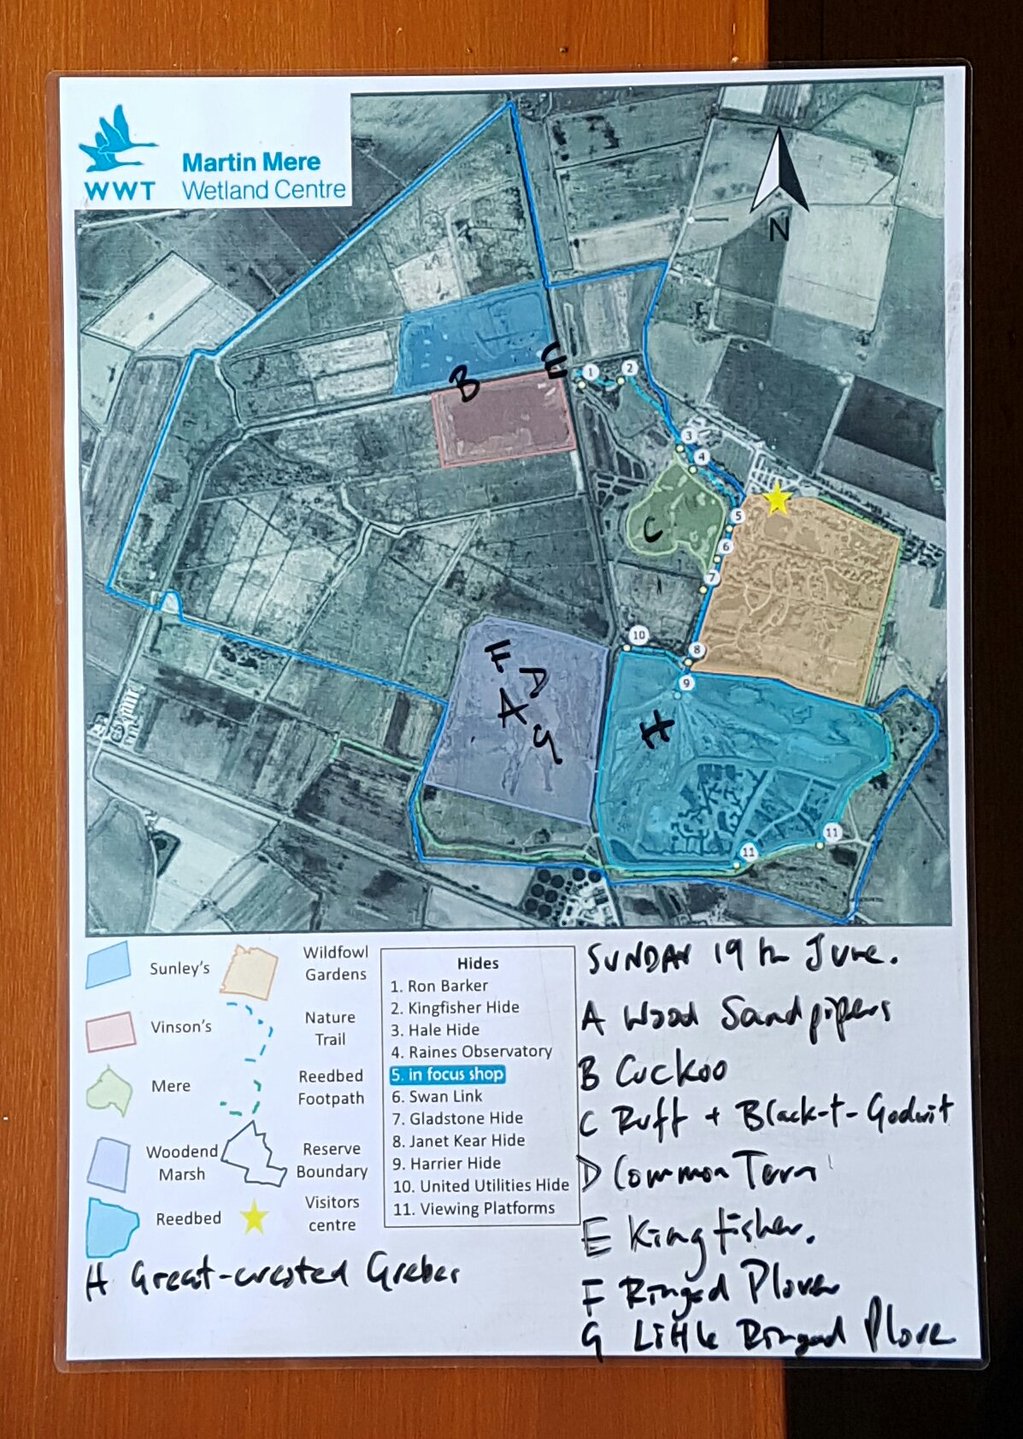 WWT
Martin Mere
Wetland Centre
N
B
E
1
2
3
4
5
6
7
C
10
8
9
F
D
A
G
H
11
11
Sunley's
Vinson's
Mere
Woodend
Marsh
Reedbed
Wildfowl
Gardens
Nature
Trail
Reedbed
Footpath
Reserve
Boundary
Visitors
centre
Hides
1. Ron Barker
2. Kingfisher Hide
3. Hale Hide
4. Raines Observatory
5. in focus shop
6. Swan Link
7. Gladstone Hide
8. Janet Kear Hide
9. Harrier Hide
10. United Utilities Hide
11. Viewing Platforms
SUNDAY 19th June.
A Wood Sandpipers
B Cuckoo
C Ruff + Black-t-Godwit
D Common Tern
E Kingfisher.
F Ringed Plover
G Little Ringed Plover
H Great-crested Grebes